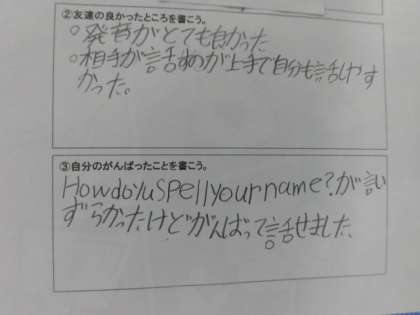 ②友達の良かったところを書こう。
○発音がとても良かった
○相手が話すのが上手で自分も話しやす
かった。
③自分のがんばったことを書こう。
Howdoyuspellyourname?が言い
ずらかったけどがんばって話せました